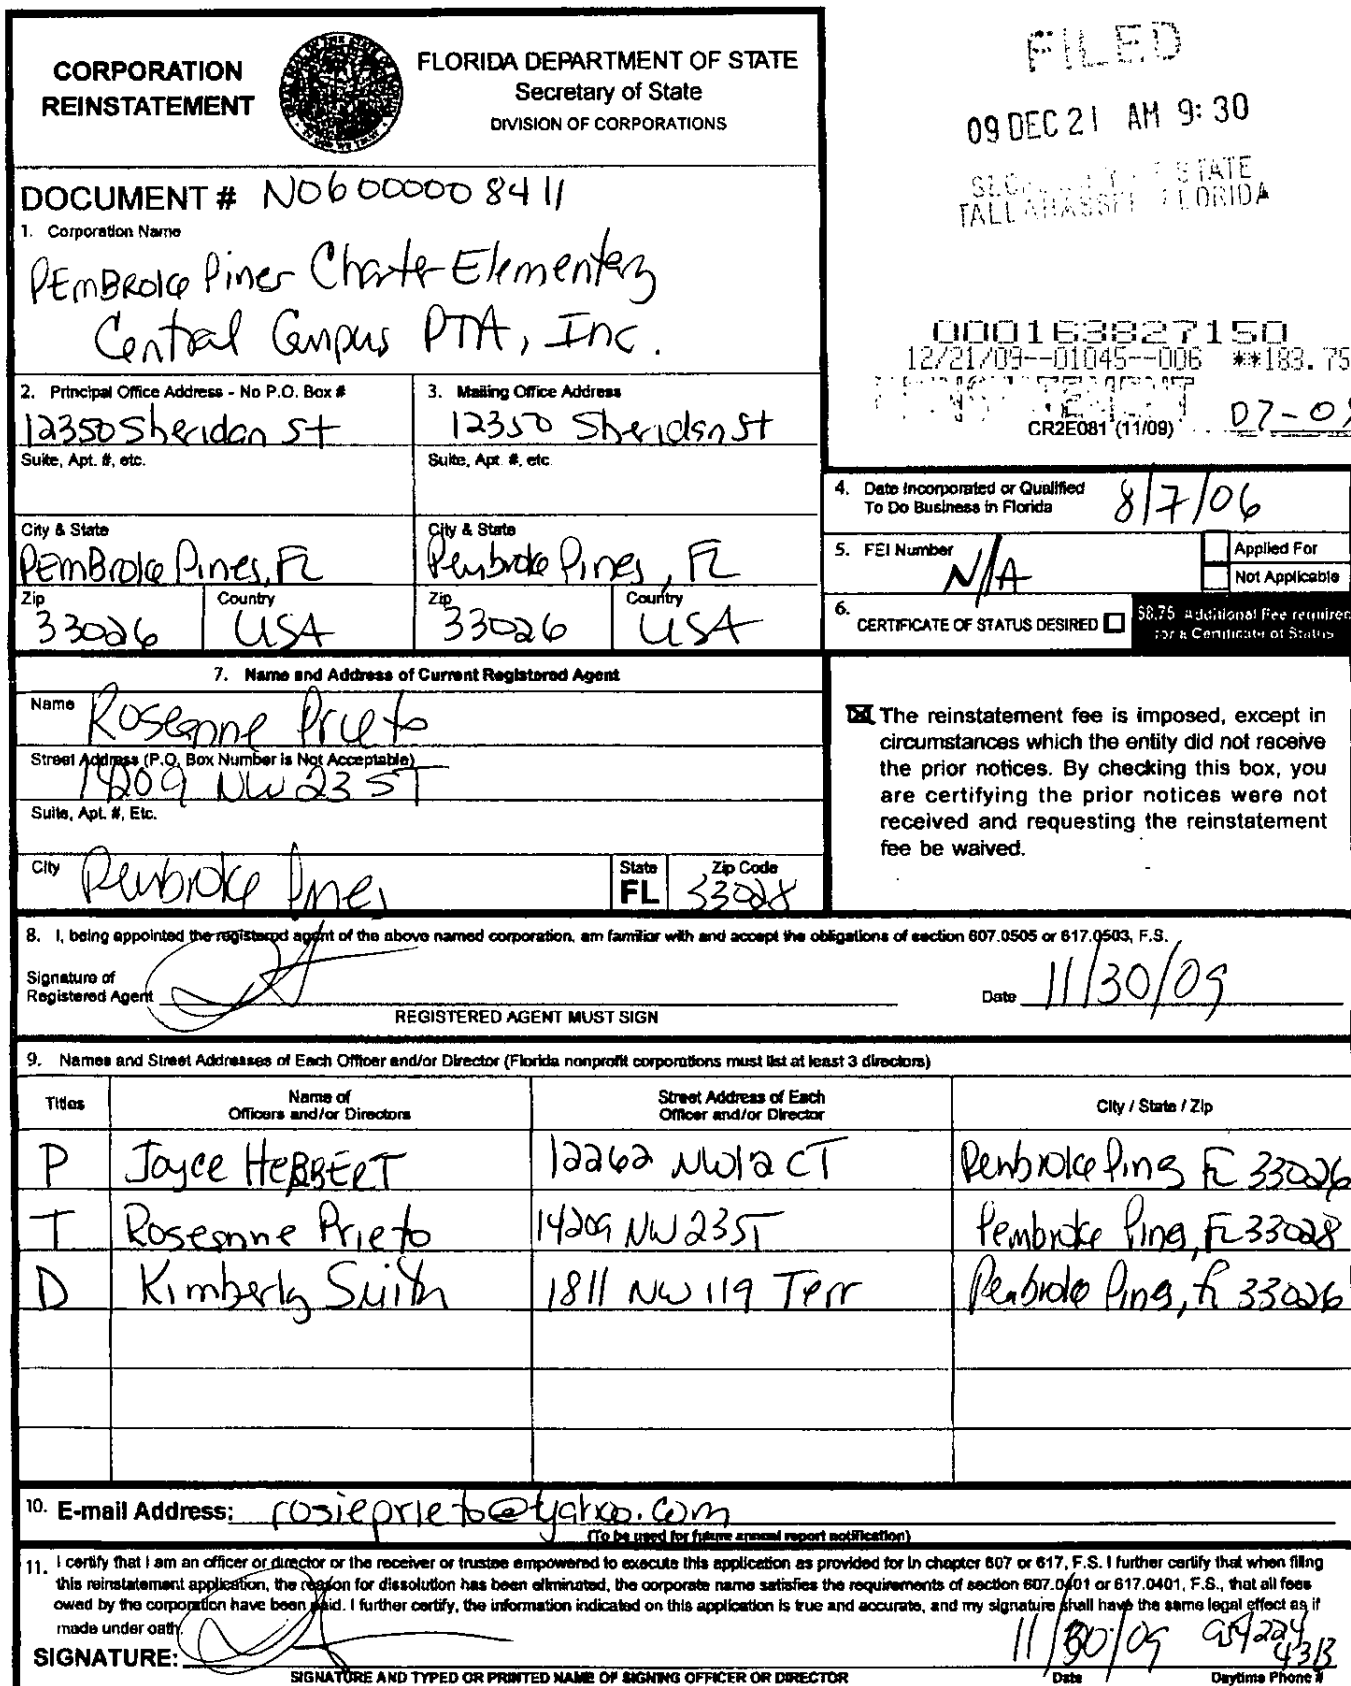 CORPORATION
REINSTATEMENT
FLORIDA DEPARTMENT OF STATE
Secretary of State
DIVISION OF CORPORATIONS
FILED
09 DEC 21 AM 9:30
STATE
TALLAHASSEE FLORIDA
DOCUMENT # N06000008411
1. Corporation Name
PEMBROKE Pines Charter Elementary
Central Campus PTA, Inc.
000163827150
12/21/09--01045--006 **183.75
CR2E081 (11/09)
2. Principal Office Address - No P.O. Box #
12350 Sheridan St
Suite, Apt. #, etc.
City & State
PEMBROKE Pines, FL
Zip
33026
Country
USA
3. Mailing Office Address
12350 Sheridan St
Suite, Apt. #, etc.
City & State
Pembroke Pines, FL
Zip
33026
Country
USA
4. Date Incorporated or Qualified
To Do Business in Florida
8/7/06
5. FEI Number
N/A
Applied For
Not Applicable
6.
CERTIFICATE OF STATUS DESIRED
$8.75 Additional Fee required
for a Certificate of Status
7. Name and Address of Current Registered Agent
Name
Roseanne Prieto
Street Address (P.O. Box Number is Not Acceptable)
14209 NW 23 ST
Suite, Apt. #, Etc.
City
Pembroke Pines
State
FL
Zip Code
33028
The reinstatement fee is imposed, except in
circumstances which the entity did not receive
the prior notices. By checking this box, you
are certifying the prior notices were not
received and requesting the reinstatement
fee be waived.
8. I, being appointed the registered agent of the above named corporation, am familiar with and accept the obligations of section 607.0505 or 617.0503, F.S.
Signature of
Registered Agent
Date 11/30/09
REGISTERED AGENT MUST SIGN
9. Names and Street Addresses of Each Officer and/or Director (Florida nonprofit corporations must list at least 3 directors)
Titles
Name of
Officers and/or Directors
Street Address of Each
Officer and/or Director
City / State / Zip
P Joyce HEBBERT 12262 NW 12 CT Pembroke Pines FL 33026
T Roseanne Prieto 14209 NW 23 ST Pembroke Pines, FL 33028
D Kimberly Smith 1811 NW 119 Terr Pembroke Pines, FL 33026
10. E-mail Address: rosieprieto@yahoo.com
(To be used for future annual report notification)
11. I certify that I am an officer or director or the receiver or trustee empowered to execute this application as provided for in chapter 607 or 617, F.S. I further certify that when filing
this reinstatement application, the reason for dissolution has been eliminated, the corporate name satisfies the requirements of section 607.0401 or 617.0401, F.S., that all fees
owed by the corporation have been paid. I further certify, the information indicated on this application is true and accurate, and my signature shall have the same legal effect as if
made under oath.
SIGNATURE:
11/30/09
954 224
4313
SIGNATURE AND TYPED OR PRINTED NAME OF SIGNING OFFICER OR DIRECTOR
Date
Daytime Phone #